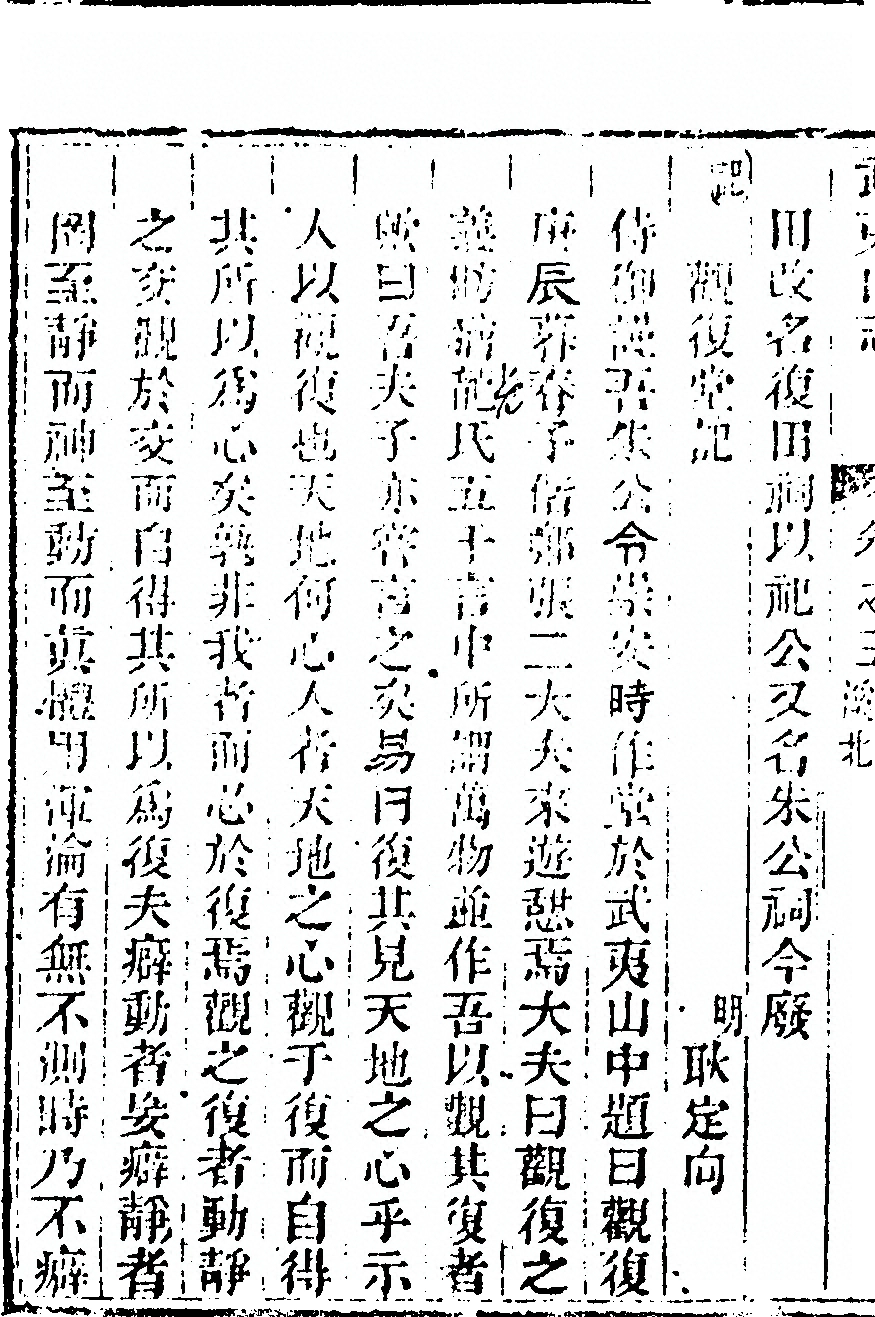 武夷山志 卷之三 溪北
田改名復田祠以祀公又名朱公祠今廢
記
觀復堂記 明耿定向
侍御謹吾朱公令崇安時作堂於武夷山中題曰觀復
庚辰暮春予偕鄒張二大夫來遊憇焉大夫曰觀復之
義昉諸老氏五千言中所謂萬物並作吾以觀其復者
歟曰吾夫子亦嘗言之矣易曰復其見天地之心乎示
人以觀復也天地何心人者天地之心觀于復而自得
其所以爲心矣孰非我者而必於復焉觀之復者動靜
之交觀於交而自得其所以爲復夫癖動者妄癖靜者
罔至靜而神至動而眞體用渾淪有無不測時乃不癖